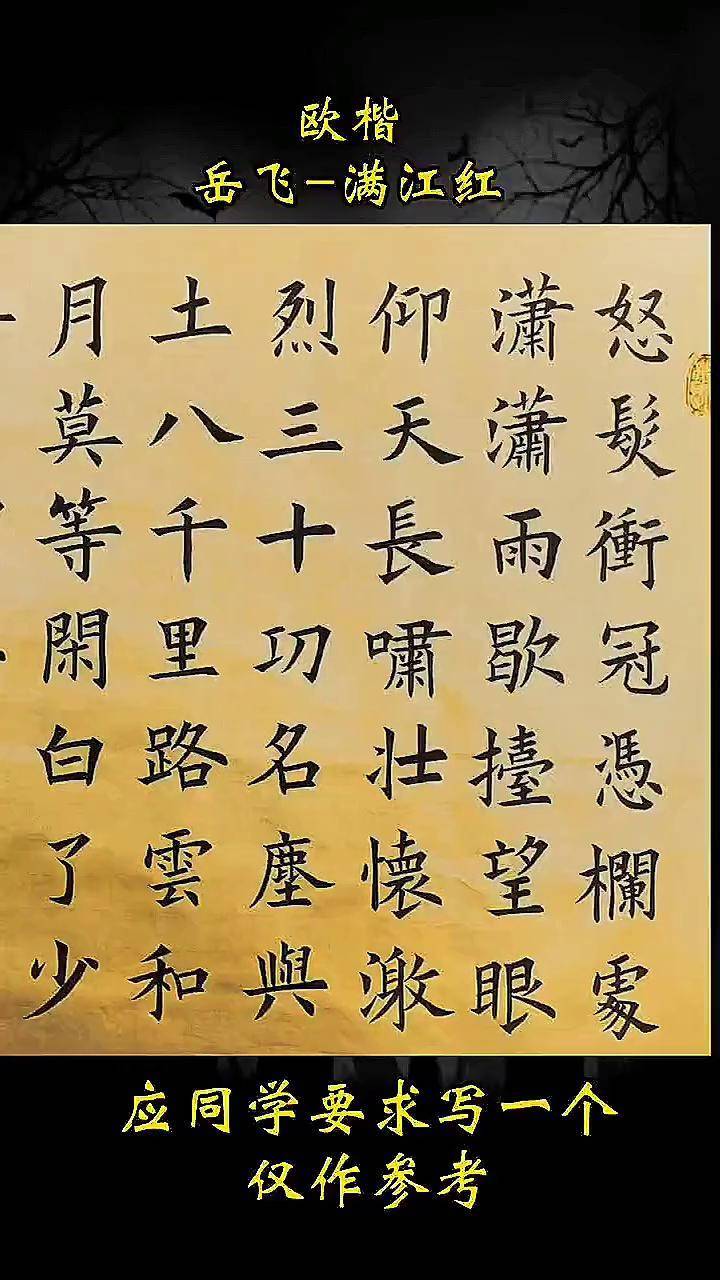 欧楷
岳飞-满江红
怒髮衝冠憑欄處
瀟瀟雨歇擡望眼
仰天長嘯壯懷激
烈三十功名塵與
土八千里路雲和
月莫等閑白了少
应同学要求写一个
仅作参考